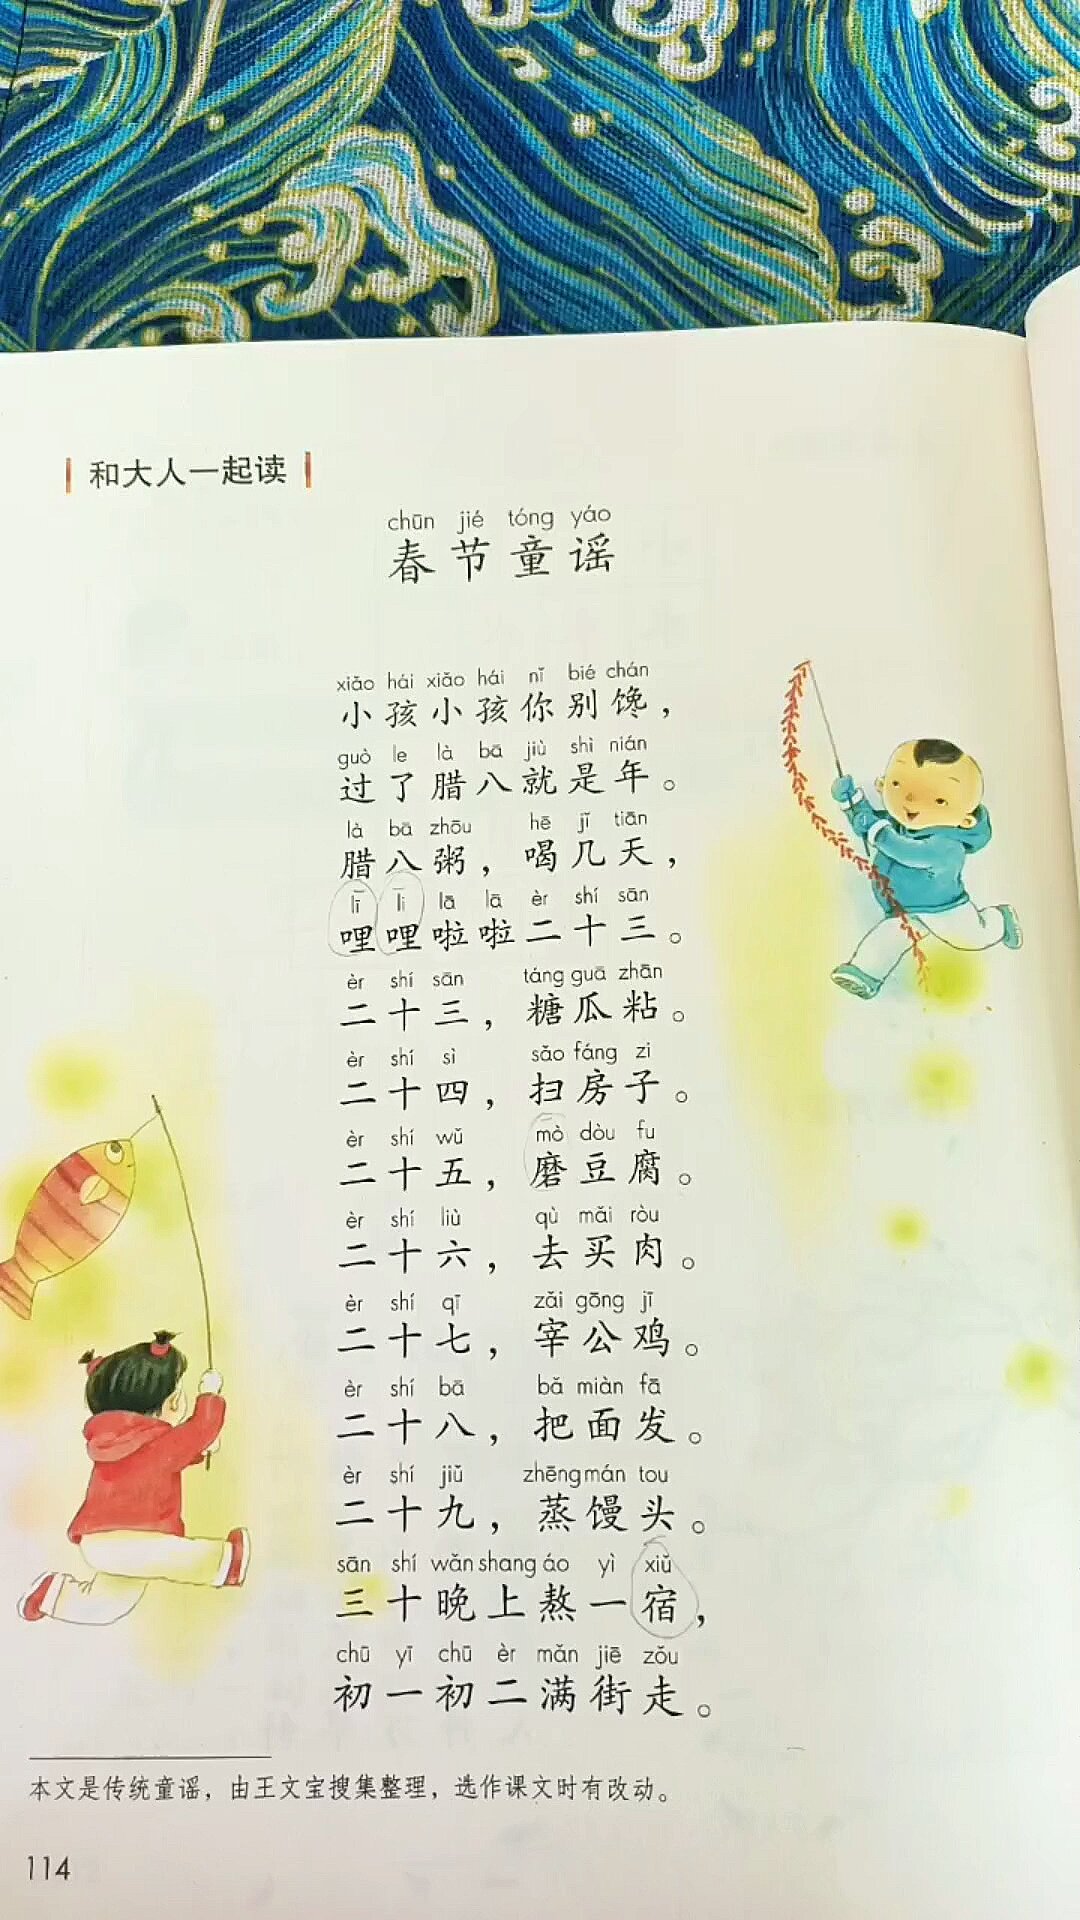 和大人一起读
chūn jié tóng yáo
春节童谣
xiǎo hái xiǎo hái nǐ bié chán
小孩小孩你别馋，
guò le là bā jiù shì nián
过了腊八就是年。
là bā zhōu hē jǐ tiān
腊八粥，喝几天，
lī li lā lā èr shí sān
哩哩啦啦二十三。
èr shí sān táng guā zhān
二十三，糖瓜粘。
èr shí sì sǎo fáng zi
二十四，扫房子。
èr shí wǔ mò dòu fu
二十五，磨豆腐。
èr shí liù qù mǎi ròu
二十六，去买肉。
èr shí qī zǎi gōng jī
二十七，宰公鸡。
èr shí bā bǎ miàn fā
二十八，把面发。
èr shí jiǔ zhēng mán tou
二十九，蒸馒头。
sān shí wǎn shang áo yì xiǔ
三十晚上熬一宿，
chū yī chū èr mǎn jiē zǒu
初一初二满街走。
本文是传统童谣，由王文宝搜集整理，选作课文时有改动。
114